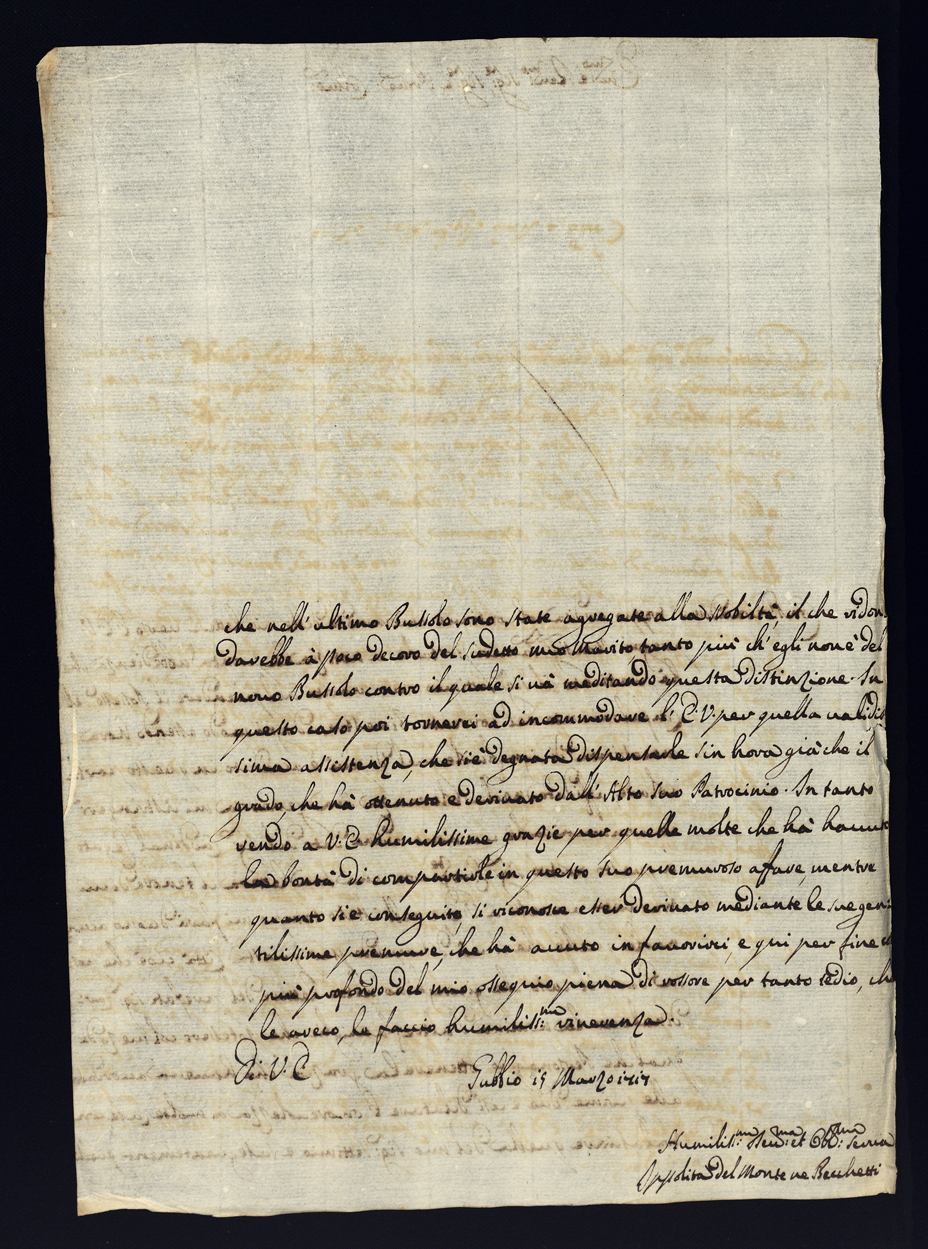 che nell' ultimo Bussolo sono state agregate alla Nobiltà, il che ridon
darebbe à poco decoro del sudetto mio Marito, tanto più ch' egli non è del
novo Bussolo contro il quale si và meditando questa distinzione. In
questo caso poi tornerei ad incommodare l' E.V. per quella validis
sima assistenza, che si è degnata dispensarle sin hora già che il
grado, che hà ottenuto e derivato dall' Alto suo Patrocinio. In tanto
rendo a V.E. humilissime grazie per quelle molte che hà hauuto
la bontà di compartirle in questo suo premuroso affare, mentre
quanto si è conseguito, si riconosce esser derivato mediante le sue gen
tilissime premure, che hà auuto in fauorirci, e qui per fine col
più profondo del mio ossequio piena di rossore per tanto tedio, che
le areco, le faccio humiliss:ma rinerenza.
Di V.E.
Gubbio 15 Marzo 1717
Humiliss:ma Deu:ma et Obl:ma Serua
Ippolita del Monte ne Becchetti